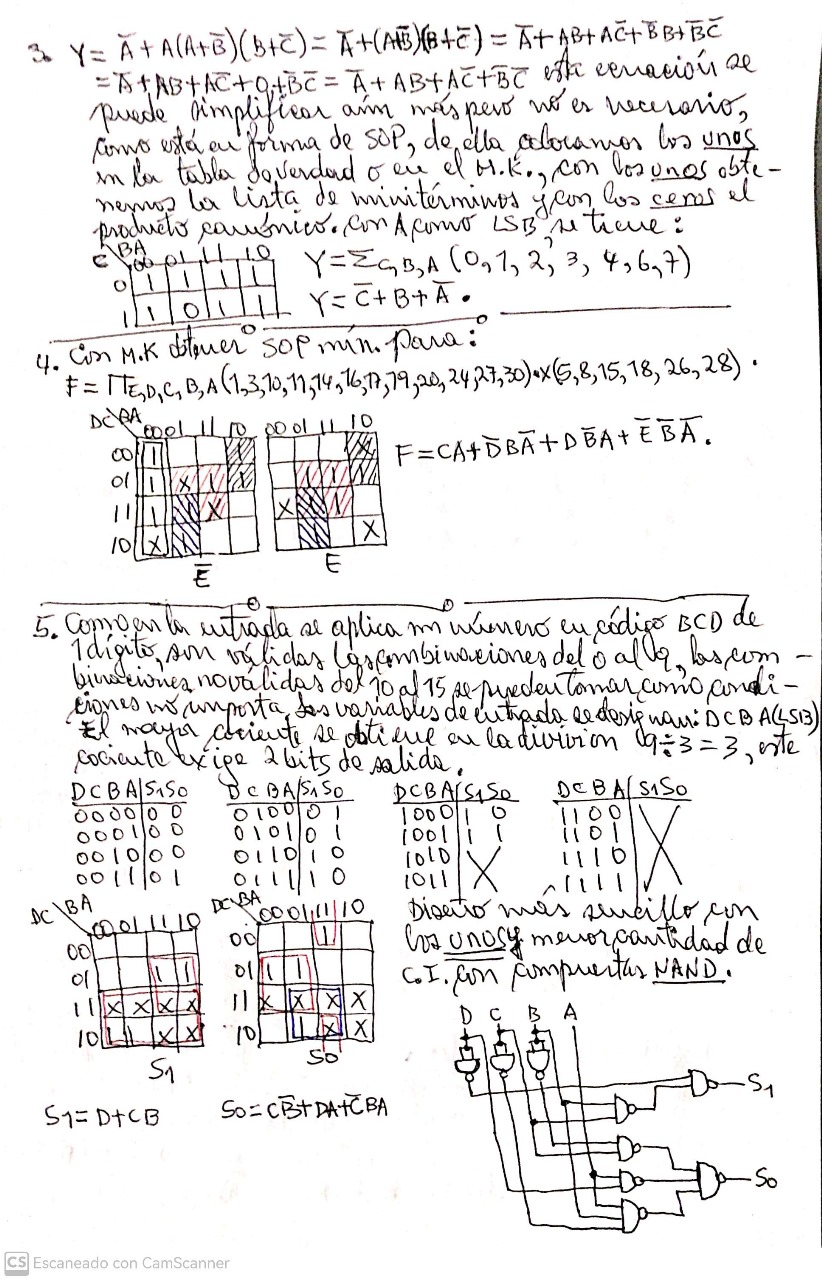 3. Y= A̅ + A(A+B̅)(B+C̅) = A̅+(AB̅)(B+C̅) = A̅+AB+AC̅+B̅B+B̅C̅
= A̅+AB+AC̅+0+B̅C̅ = A̅+AB+AC̅+B̅C̅ esta ecuación se
puede simplificar aún mas pero no es necesario,
como está en forma de SOP, de ella colocamos los unos
en la tabla de verdad o en el M.K., con los unos obte-
nemos la lista de minitérminos y con los ceros el
producto canónico. Con A como LSB, se tiene:
C\BA 00 01 11 10
0 1 1 1 1
1 1 0 1 1
Y=Σ C,B,A (0,1,2,3,4,6,7)
Y= C̅+B+A̅.
4. Con M.K obtener SOP mín. para:
F= ∏E,D,C,B,A(1,3,10,11,14,16,17,19,20,24,27,30)•X(5,8,15,18,26,28).
DC\BA 00 01 11 10 00 01 11 10
00 1 1 X
01 1 X 1 1 1 1 1
11 1 1 X X 1 1
10 X 1 1 X
E̅ E
F=CA+D̅BA̅+DB̅A+E̅B̅A̅.
5. Como en la entrada se aplica un número en código BCD de
1 dígito, son válidas las combinaciones del 0 al 9, las com-
binaciones no validas del 10 al 15 se pueden tomar como condi-
ciones no importa, las variables de entrada se designan: DCBA(LSB)
El mayor cociente se obtiene en la división 9÷3=3, este
cociente exige 2 bits de salida.
DCBA|S1S0 DCBA|S1S0 DCBA|S1S0 DCBA|S1S0
0000 00 0100 01 1000 10 1100
0001 00 0101 01 1001 11 1101
0010 00 0110 10 1010 X 1110 X
0011 01 0111 10 1011 1111
DC\BA 00 01 11 10
00
01 1 1
11 X X X X
10 1 1 X X
S1
DC\BA 00 01 11 10
00 1
01 1 1
11 X X X X
10 1 X X
S0
Diseño más sencillo con
los unos y menor cantidad de
C.I. con compuertas NAND.
D C B A
S1
S0
S1= D+CB
S0= CB̅+DA+C̅BA
CS Escaneado con CamScanner